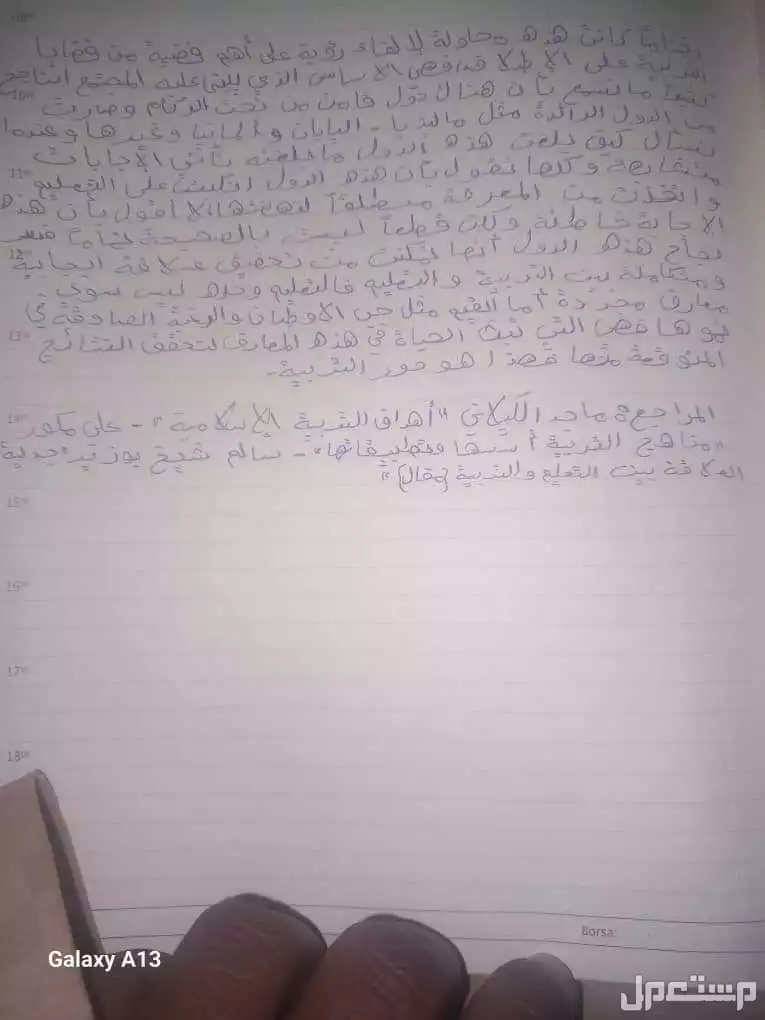 ختاماً كانت هذه محاولة لإلقاء رؤية على أهم قضية من قضايا
التربية على الإطلاق فهي الأساس الذي يبنى عليه المجتمع الناجح
10⁰⁰ ما نسمع بأن هنالك دول قامت من تحت الركام وصارت
من الدول الرائدة مثل ماليزيا - اليابان وألمانيا وغيرها وعندما
نسأل كيف بلغت هذه الدول ما بلغته تأتي الإجابات
11⁰⁰ متشابهة وكلها تقول بأن هذه الدول ركزت على التعليم
واتخذت من المعرفة منطلقاً لنهضتها، لا أقول بأن هذه
الإجابة خاطئة ولكن قطعاً ليست بالصحيحة تماماً
12⁰⁰ نجاح هذه الدول أنها تمكنت من تحقيق علاقة إيجابية
ومتكاملة بين التربية والتعليم فالتعليم وحده ليس سوى
معارف مجردة أما القيم مثل حب الأوطان والرغبة الصادقة في
13⁰⁰ فهي التي تبث الحياة في هذه المعارف لتحقق النتائج
المتوقعة منها فهذا هو دور التربية.
14⁰⁰ المراجع: ماجد الكيلاني "أهداف التربية الإسلامية" - علي مدكور
"مناهج التربية أسسها وتطبيقاتها" - سالم شيخ بوزيد "جدلية
العلاقة بين التعليم والتربية (مقال)"
15⁰⁰
16⁰⁰
17⁰⁰
18⁰⁰
Borsa:
Galaxy A13
مستعمل